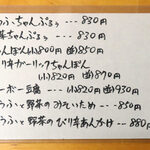 ふちゃんぷるぅ --- 830円
菜ちゃんぷるぅ --- 830円
んぽん 小800円 並850円
ピリ辛ガーリックちゃんぽん
小820円 並870円
ーボー豆腐 --- 小820円 並930円
うふと野菜のみそいため --- 850円
うふと野菜のピリ辛あんかけ --- 880